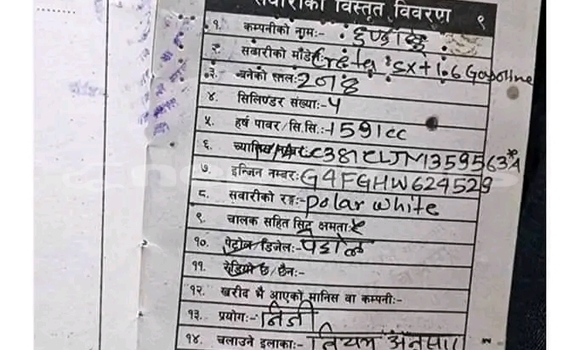 सवारीको विस्तृत विवरण ९
१. कम्पनीको नाम:- हुण्डाई
२. सवारीको मोडेल Creta SX+1.6 Gasoline
३. बनेको साल:- 2018
४. सिलिण्डर संख्या:- ५
५. हर्ष पावर/सि.सि.:- 1591cc
६.
७. इन्जिन नम्बर:- G4FGHW624529
८. सवारीको रङ्ग:- polar white
९. चालक सहित सिट क्षमता:-
१०. पेट्रोल/डिजेल:-
११. रेडियो छ/छैन:-
१२. खरीद भै आएको मानिस वा कम्पनी:-
१३. प्रयोग:- निजी
१४. चलाउने इलाका:- नियम अनुसार